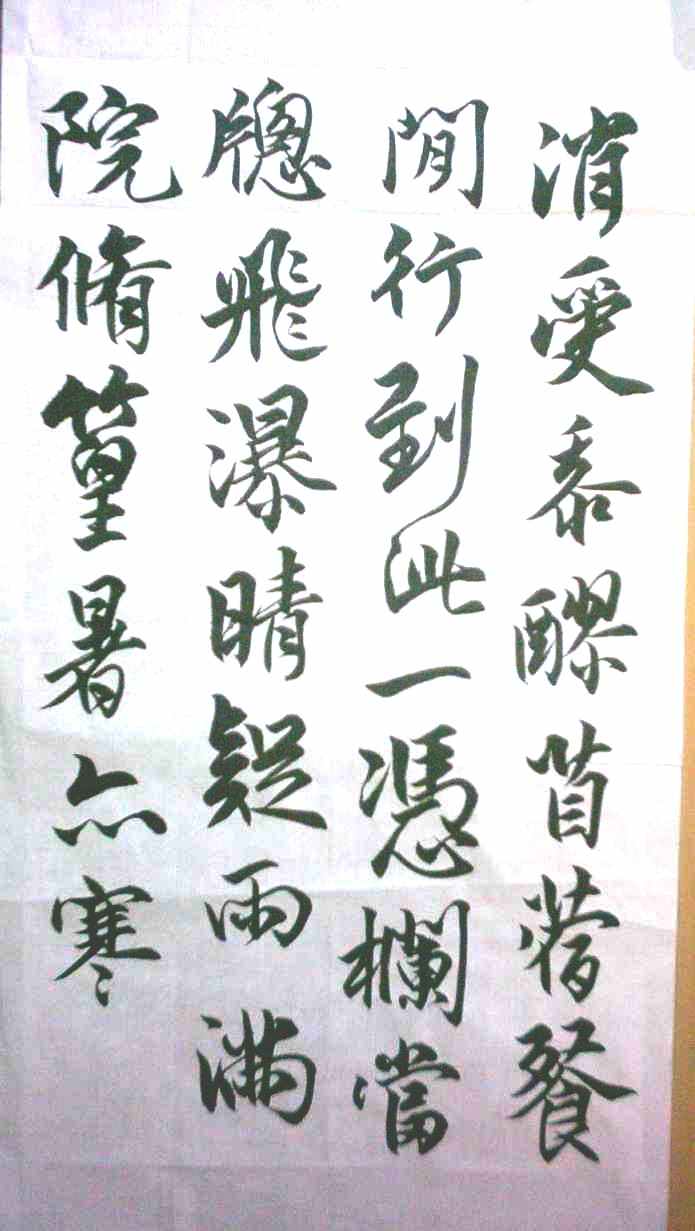 消受黍醪苜蓿餐
閒行到此一憑欄當
牕飛瀑晴疑雨滿
院脩篁暑亦寒